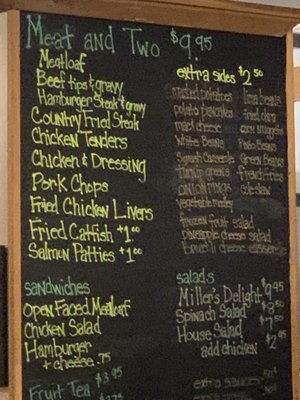 Meat and Two $9.95
Meatloaf
Beef tips & gravy
Hamburger Steak & gravy
Country Fried Steak
Chicken Tenders
Chicken & Dressing
Pork Chops
Fried Chicken Livers
Fried Catfish +1.00
Salmon Patties +1.00
extra sides $2.50
mashed potatoes
potato pancakes
mac & cheese
White Beans
Squash Casserole
turnip greens
onion rings
vegetable medley
lima beans
fried okra
corn nuggets
Pinto Beans
Green Beans
french fries
slaw
frozen fruit salad
pineapple cheese salad
Broccoli cheese
sandwiches
Open Faced Meatloaf
Chicken Salad
Hamburger
+ cheese .75
Fruit Tea $3.95
salads
Miller's Delight $9.95
Spinach Salad
House Salad
add chicken
extra